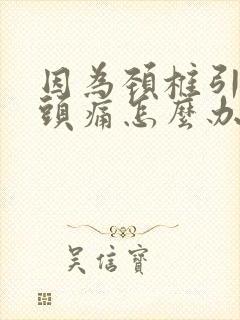 因為頸柱引
頭痛怎麼办
吳信寶